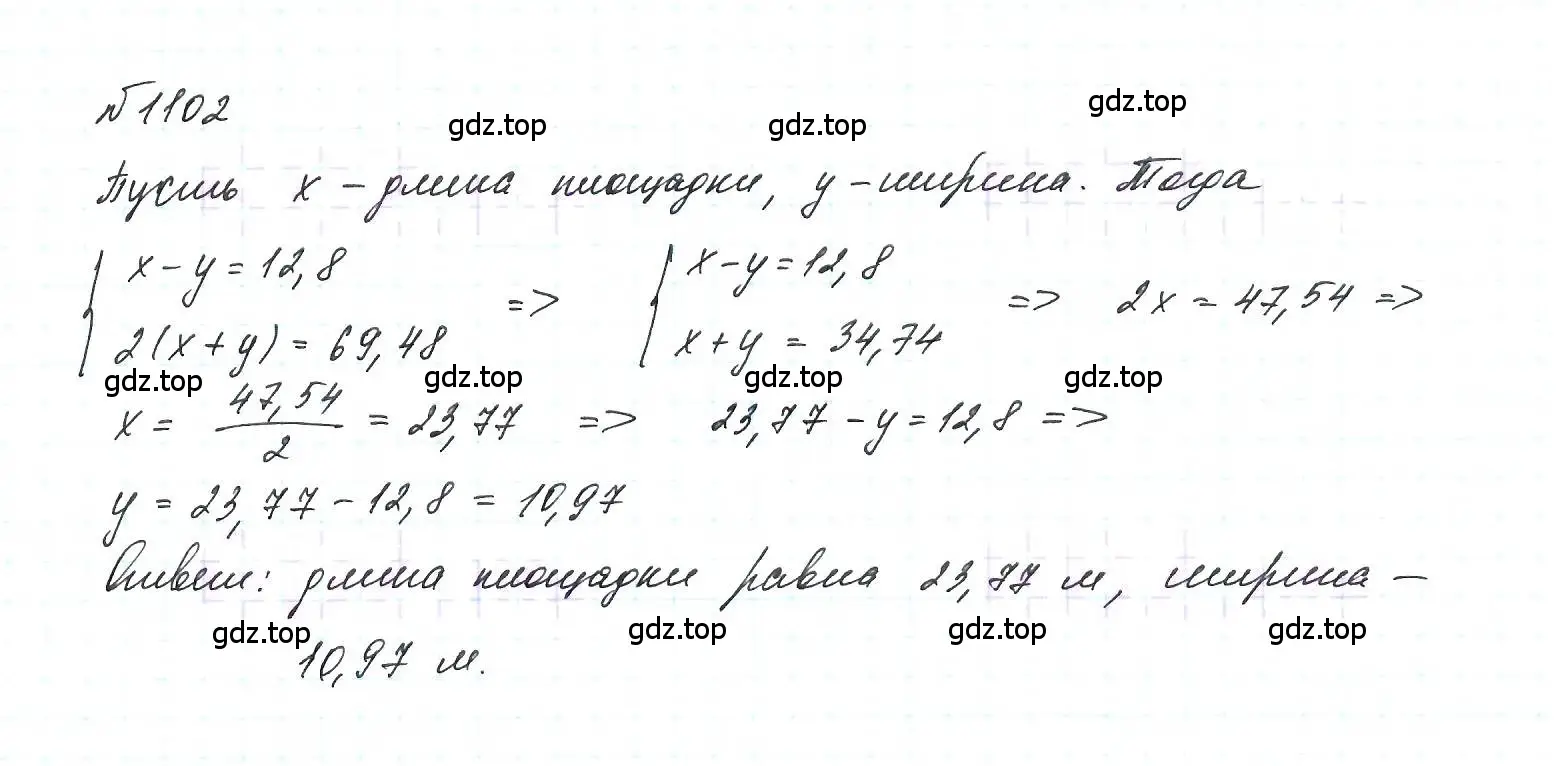 №1102
gdz.top gdz.top gdz.top
Пусть x – длина площадки, y – ширина. Тогда
{ x – y = 12,8 => { x – y = 12,8 => 2x = 47,54 =>
2(x + y) = 69,48 x + y = 34,74
gdz.top gdz.top gdz.top gdz.top
x = 47,54/2 = 23,77 => 23,77 – y = 12,8 =>
y = 23,77 – 12,8 = 10,97
Ответ: длина площадки равна 23,77 м, ширина –
gdz.top gdz.top gdz.top gdz.top
10,97 м.